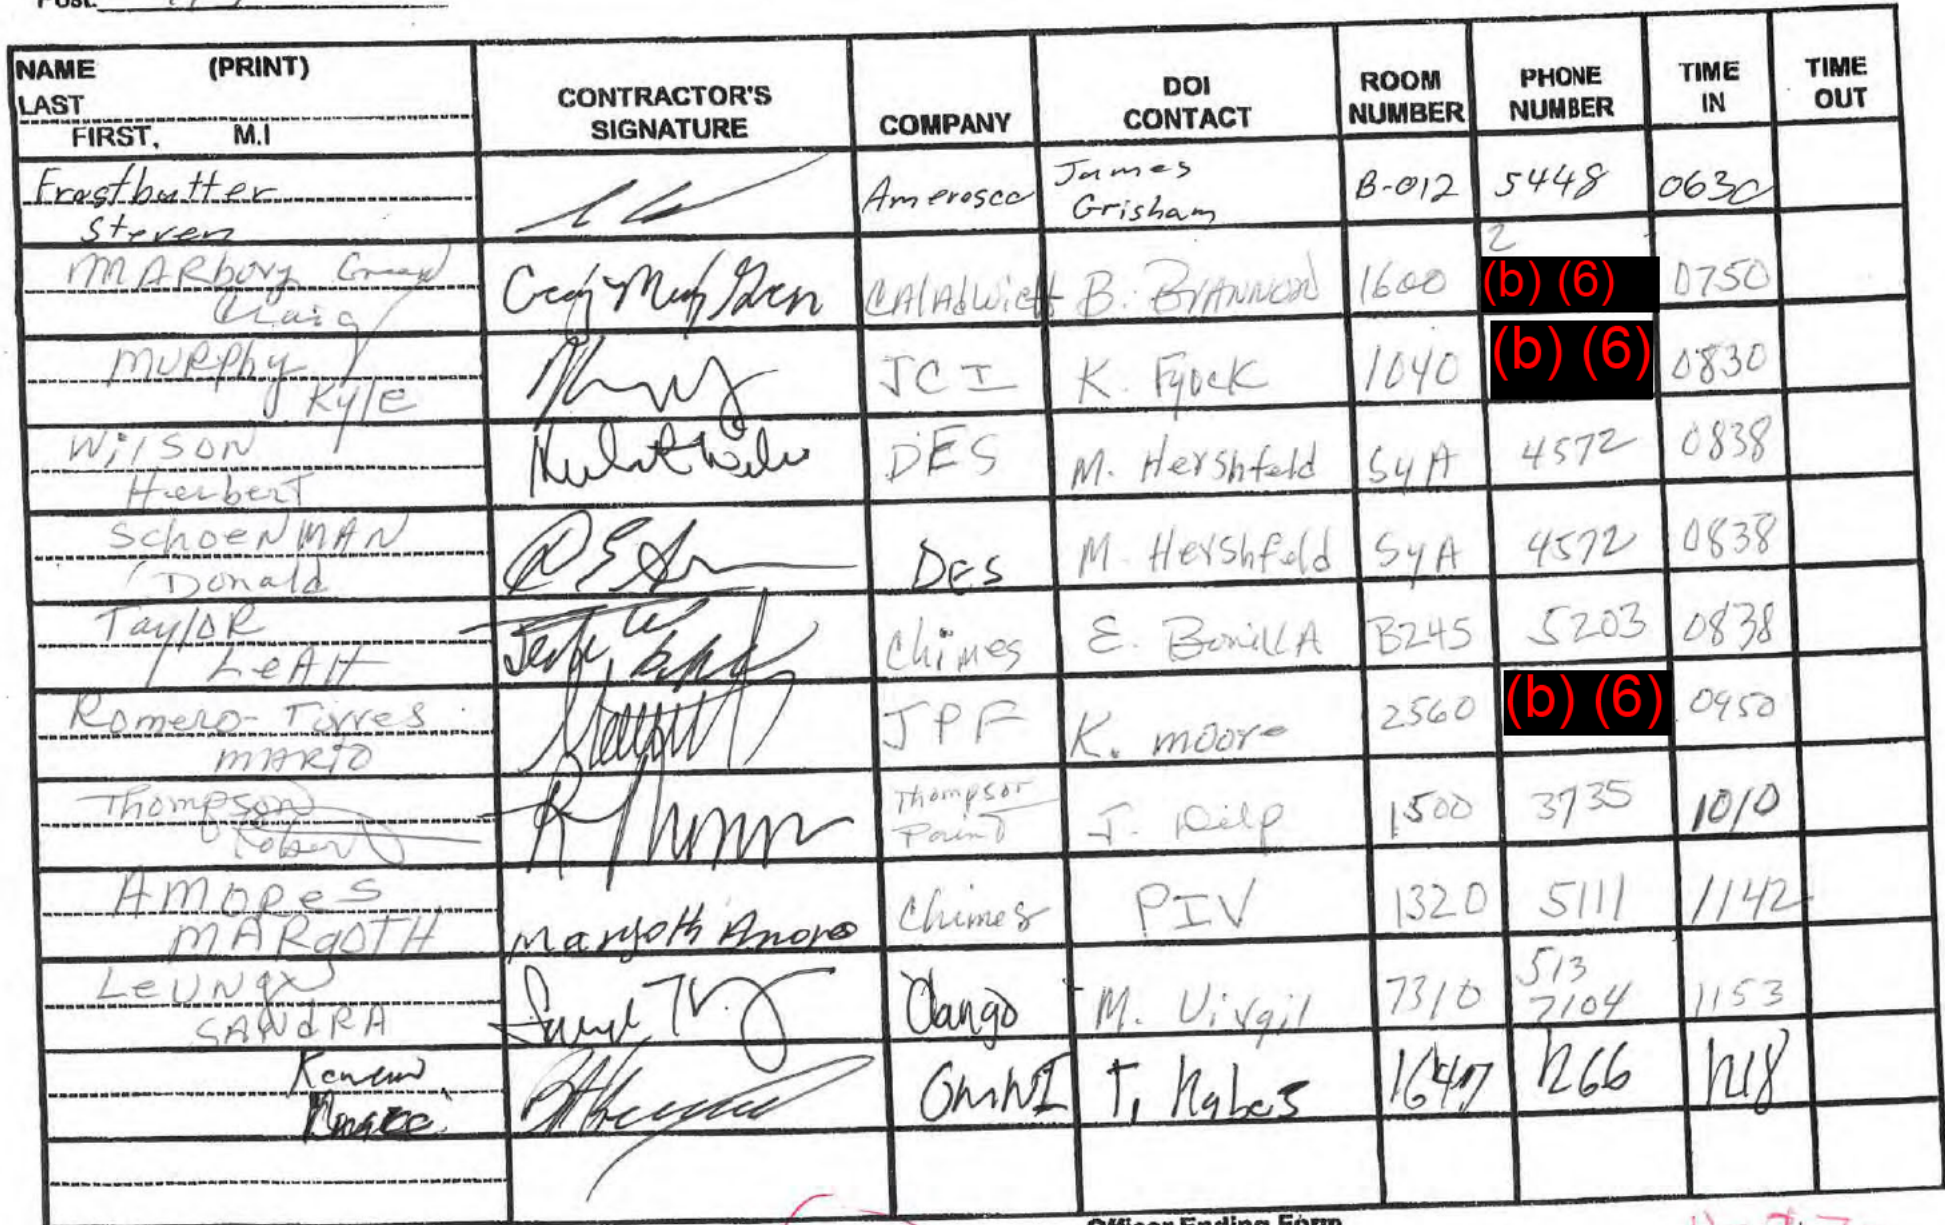 Post:
NAME (PRINT)
LAST
FIRST, M.I
CONTRACTOR'S
SIGNATURE
COMPANY
DOI
CONTACT
ROOM
NUMBER
PHONE
NUMBER
TIME
IN
TIME
OUT
Frostbutter
Steven
Amerosco
James
Grisham
B-012 5448 0630
MARbory
Craig
B. BrANNON 1600
2
(b) (6) 0750
Murphy
Kyle
JCI K. Fyock 1040 (b) (6) 0830
WilSON
Herbert
DES M. Hershfeld SyA 4572 0838
SchoenMAN
Donald
DES M. Hershfeld SyA 4572 0838
TaylOR
LeAH
Chimes E. BonillA B245 5203 0838
Romero-Torres
MARIO
JPF K. Moore 2560 (b) (6) 0950
Thompson
Robert
Thompson
Paint
J. Delp 1500 3735 1010
AMOReS
MARgOTH
Margoth Amores
Chimes PIV 1320 5111 1142
LeUNg
SANdRA
M. Virgil 7310
513
7104
1153
OmNI 1266 1218
Officer Ending Form